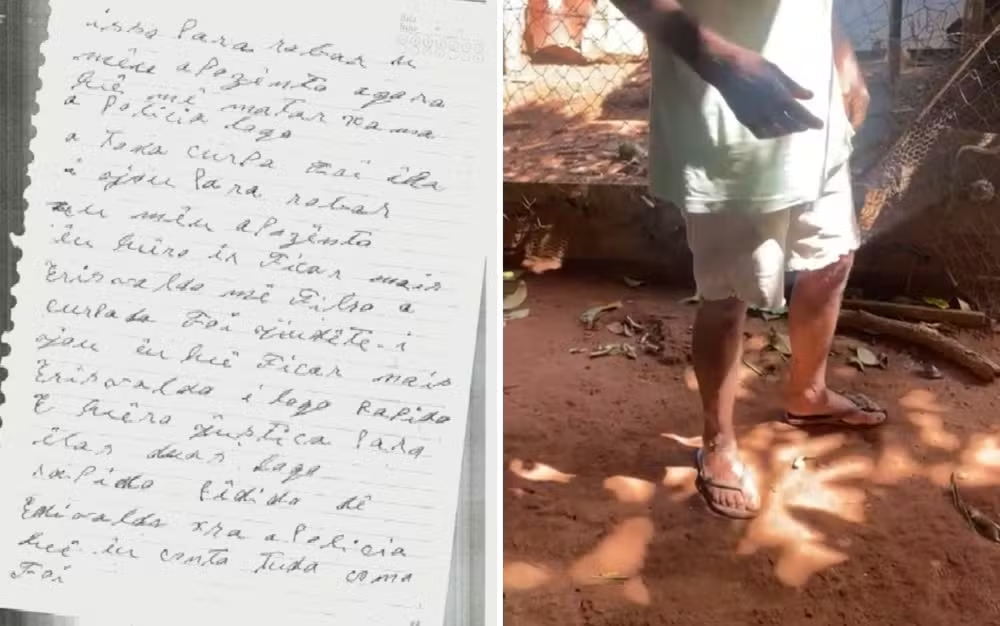 isso Para robar u
mêu aPozênto agora
kê mi matar xama
a Policia logo
a Toda curpa Foi êla
i ojou Para robar
u mêu aPozênto
êu kêro ir Ficar mais
Erisvaldo mê Filho a
curpada Foi
ojou êu kê Ficar mais
Erisvaldo i logo RaPido
E kêro justica Para
êlas duas logo
raPido Pêdido dê
Erivaldo xra a Policia
kê êu conto Tudo como
Foi